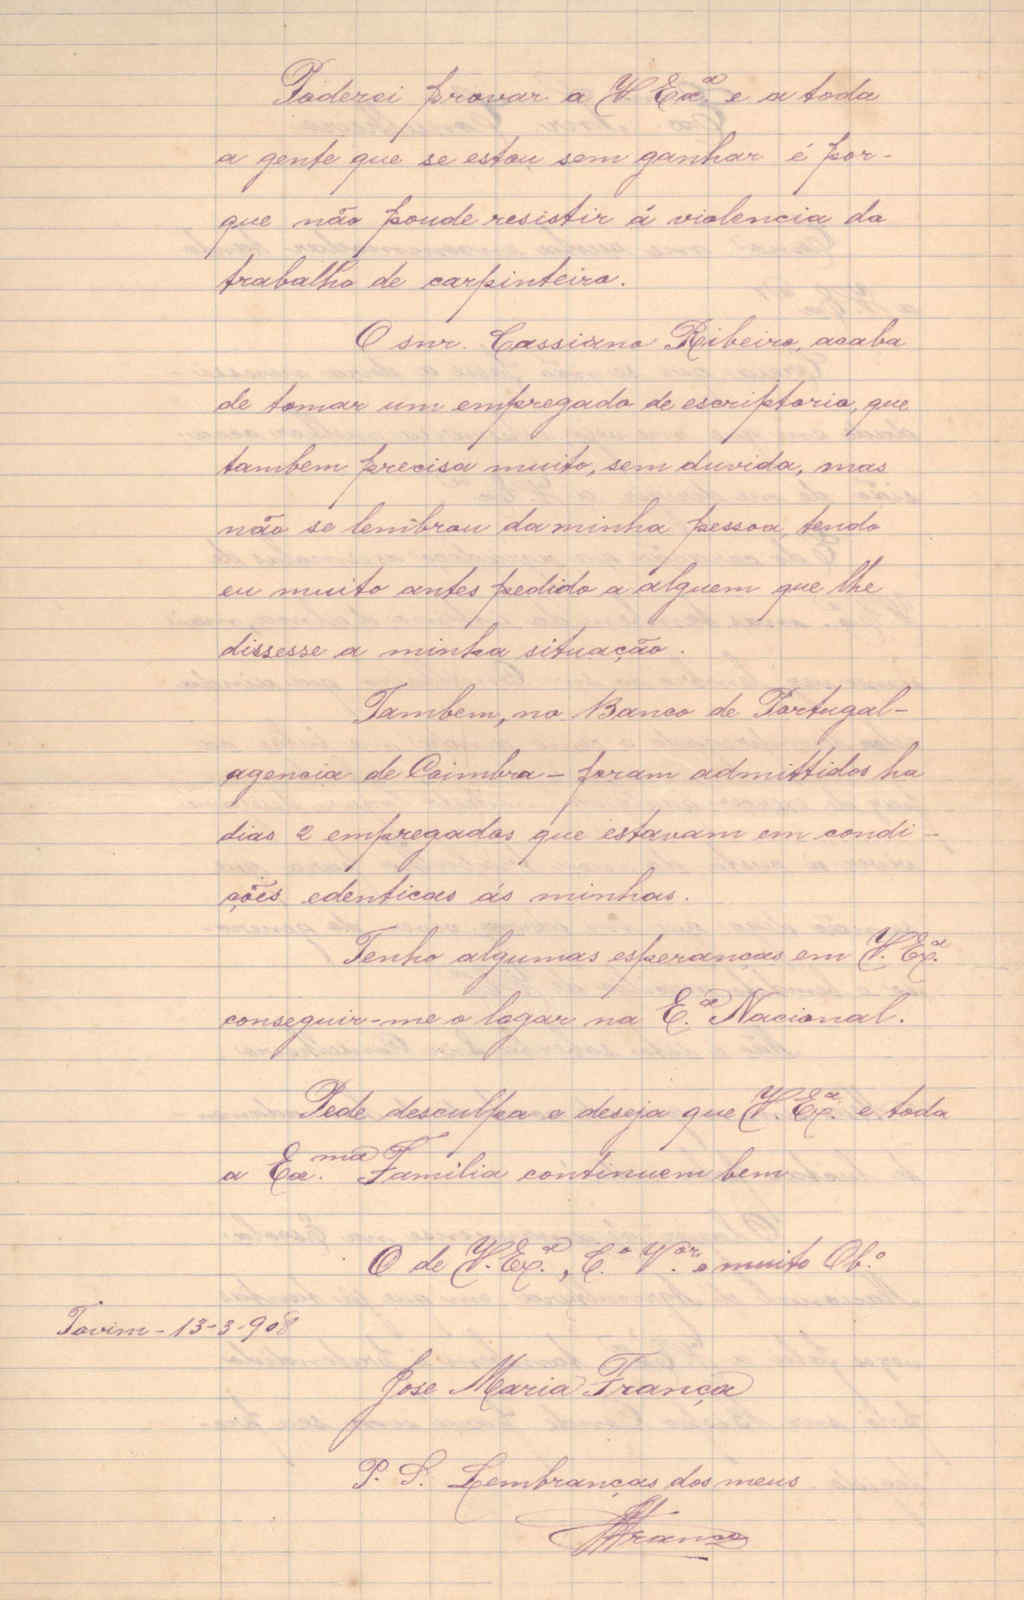 Poderei provar a V. Exª. e a toda
a gente que se estou sem ganhar é por-
que não poude resistir á violencia do
trabalho de carpinteiro.
O snr. Cassiano Ribeiro, acaba
de tomar um empregado de escriptorio, que
tambem precisa muito, sem duvida, mas
não se lembrou da minha pessoa, tendo
eu muito antes pedido a alguem que lhe
dissesse a minha situação.
Tambem, no Banco de Portugal-
agencia de Coimbra - foram admittidos ha
dias 2 empregados que estavam em condi-
ções edenticas ás minhas.
Tenho algumas esperanças em V. Exª.
conseguir-me o logar na E.ª Nacional.
Pede desculpa e deseja que V. Exª. e toda
a Ex.ma Familia continuem bem
O de V. Exª., C.º V.or e muito Ob.º
Tovim - 13-3-908
Jose Maria França
P. S. Lembranças dos meus
França